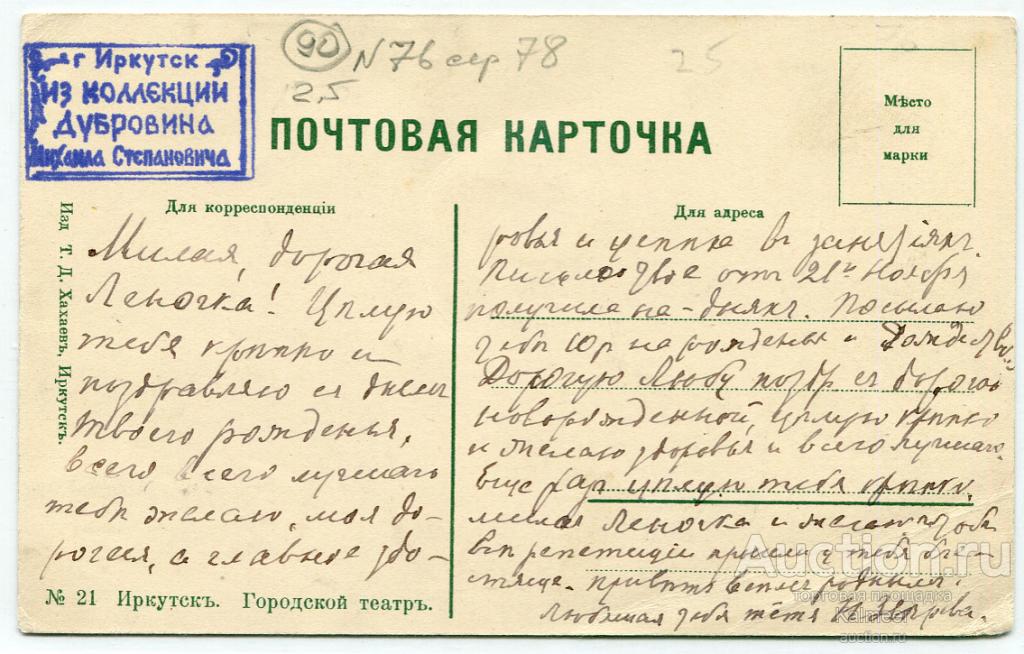 90
N 76 сер 78
2,5
25
г Иркутск
из коллекции
Дубровина
Михаила Степановича
ПОЧТОВАЯ КАРТОЧКА
Мѣсто
для
марки
Для корреспонденціи
Для адреса
Изд Т. Д. Хахаевъ, Иркутскъ.
Милая, дорогая
Леночка! Цѣлую
тебя крѣпко и
поздравляю съ днемъ
твоего рожденья,
всего, всего лучшаго
тебѣ желаю, моя до-
рогая, а главное здо-
ровья и успѣха въ занятіяхъ.
Письмо твое отъ 21го Ноября
получила на-дняхъ. Посылаю
тебѣ 10р на рожденье и Рождество.
Дорогую Любу поздр съ дорогою
новорожденной, цѣлую крѣпко
и желаю здоровья и всего лучшаго.
Еще раз цѣлую тебя крѣпко,
милая Леночка и желаю чтобы
всѣ репетиціи прошли у тебя бле-
стяще. Привѣтъ всѣмъ роднымъ.
Любящая тебя тётя
№ 21 Иркутскъ. Городской театръ.
Auction.ru
торговая площадка
Kalmeer
auction.ru